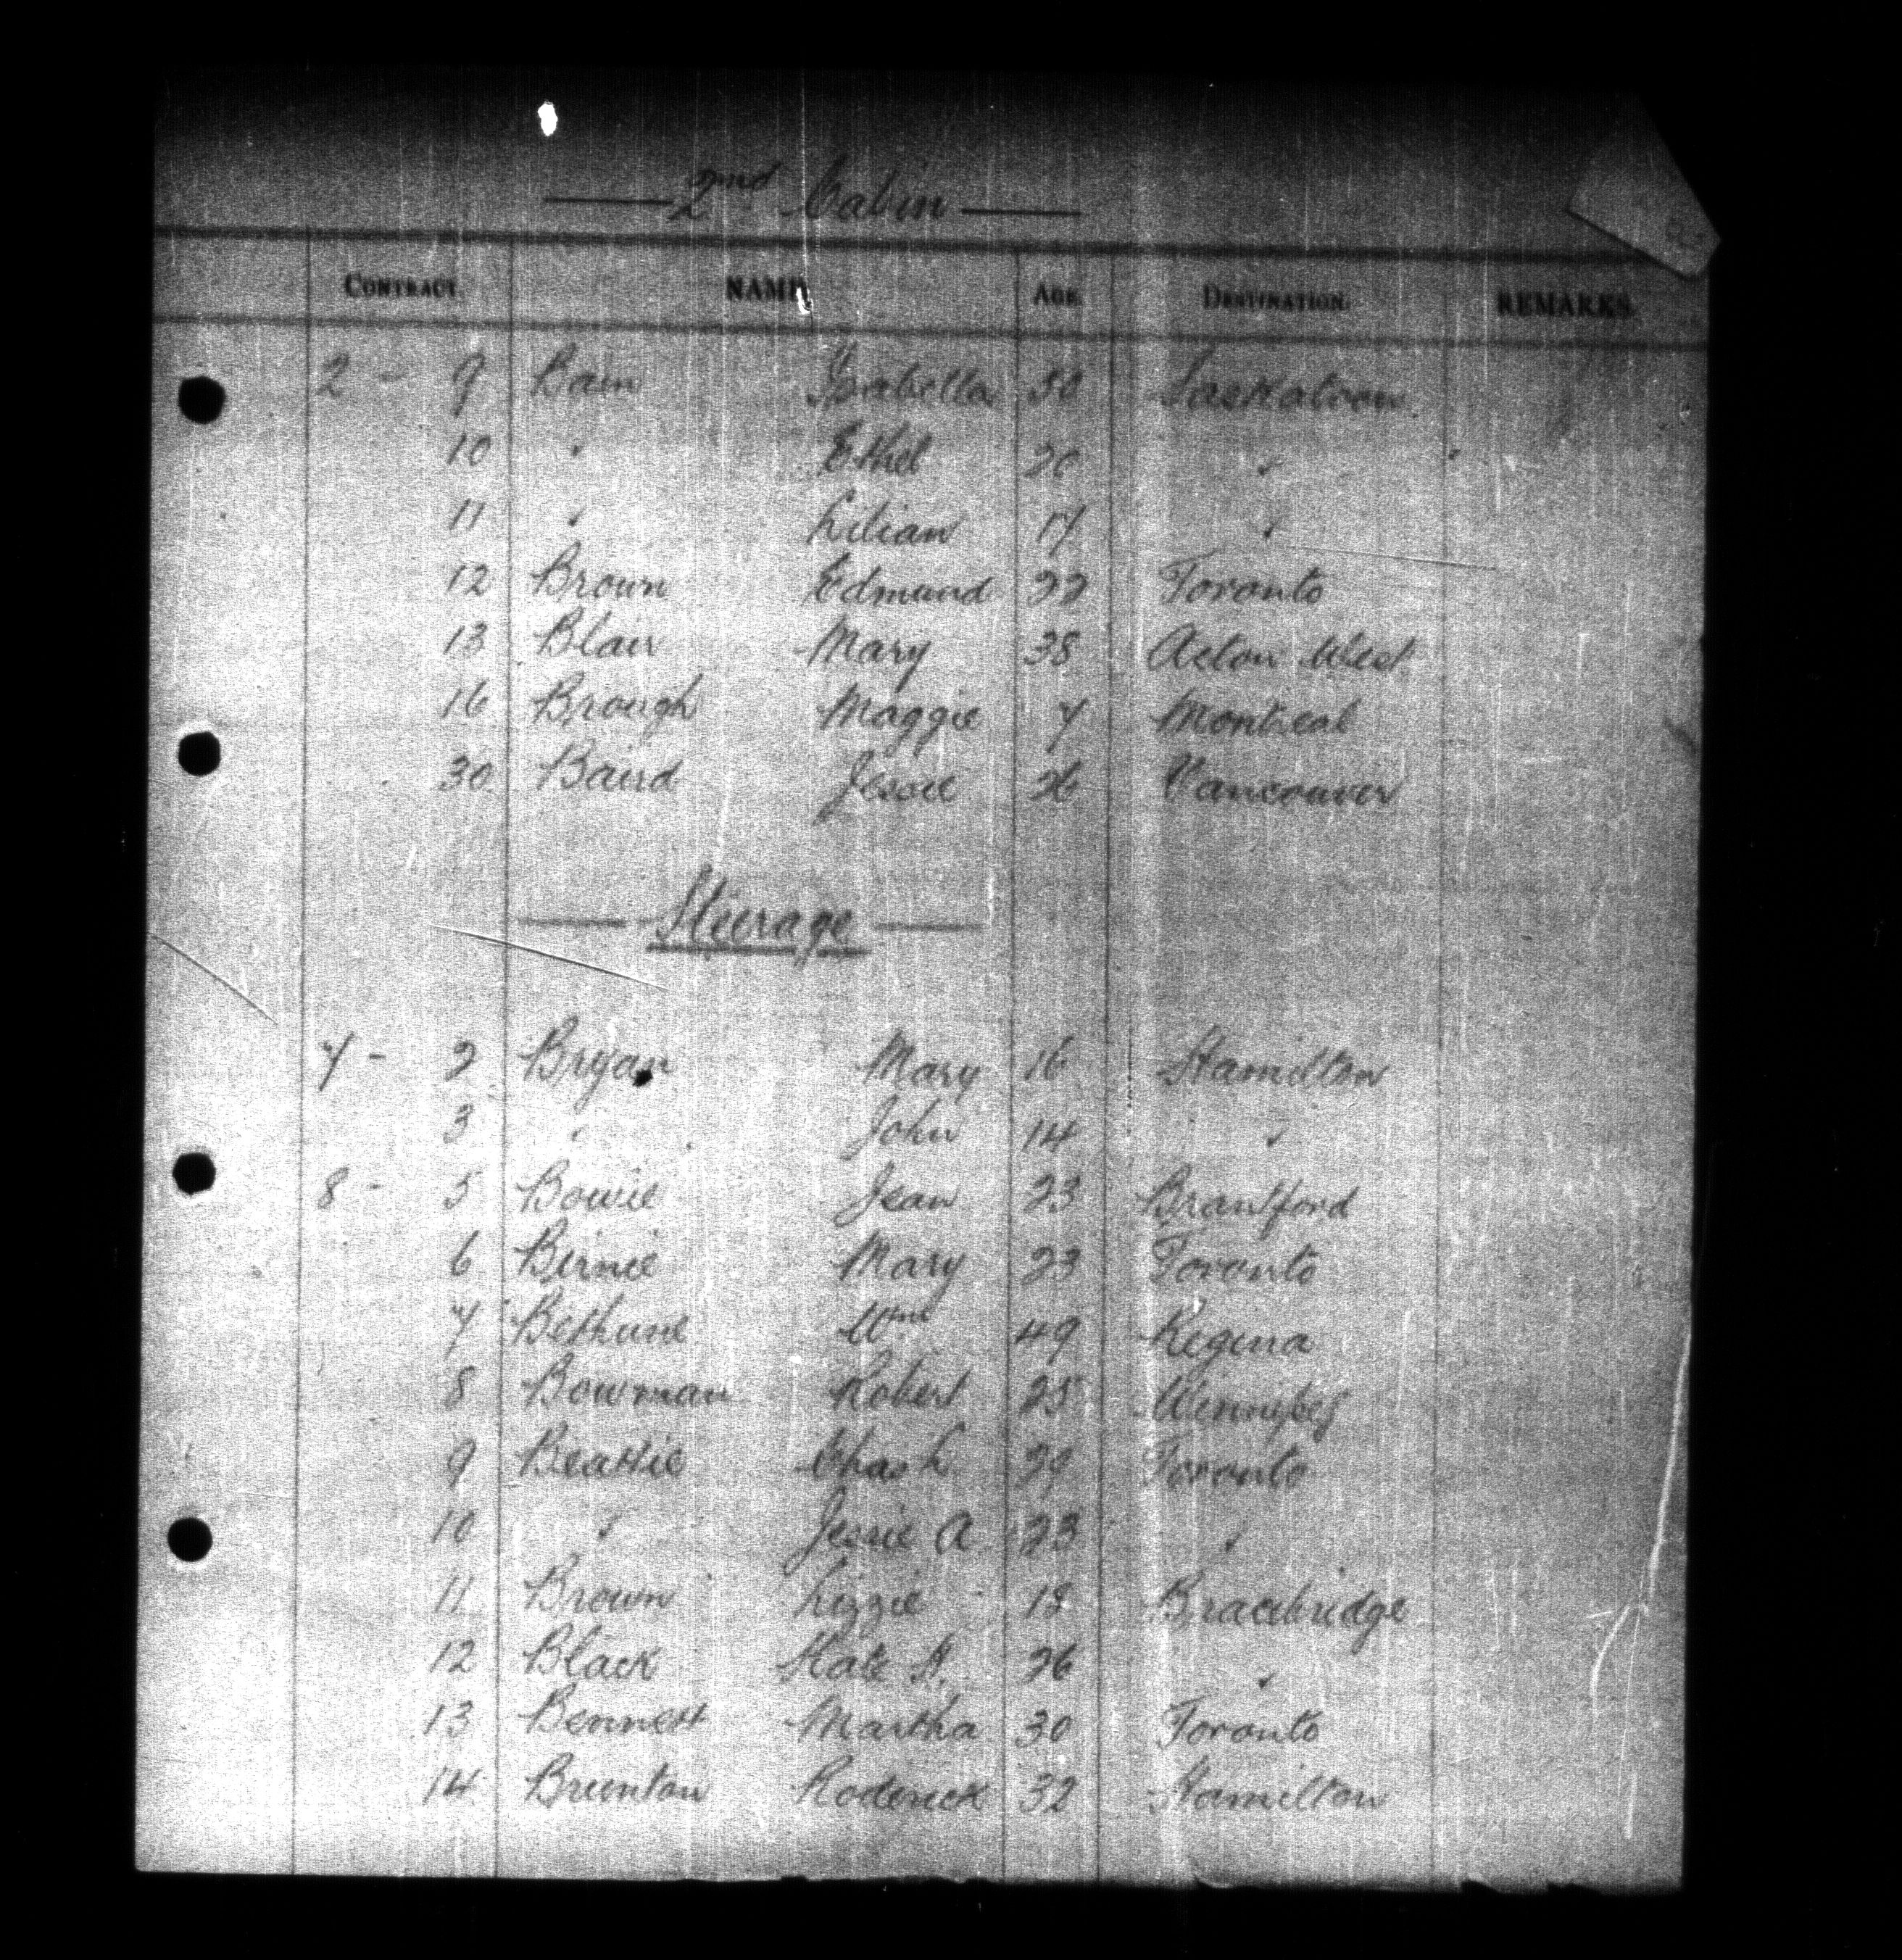 2nd Cabin
CONTRACT. NAME AGE. DESTINATION. REMARKS.
2 - 9 Bain Isabella 50 Saskatoon
10 " Ethel 20 "
11 " Lilian 17 "
12 Brown Edmund 22 Toronto
13 Blair Mary 38 Acton West
16 Brough Maggie 7 Montreal
30 Baird Jessie 26 Vancouver
Steerage
7 - 2 Bryan Mary 16 Hamilton
3 " John 14 "
8 - 5 Bowie Jean 23 Brantford
6 Birnie Mary 23 Toronto
7 Bethune Wm 49 Regina
8 Bowman Robert 25 Winnipeg
9 Beattie Chas L. 29 Toronto
10 " Jessie A 23 "
11 Brown Lizzie 18 Bracebridge
12 Black Kate H. 26 "
13 Bennett Martha 30 Toronto
14 Brunton Roderick 32 Hamilton